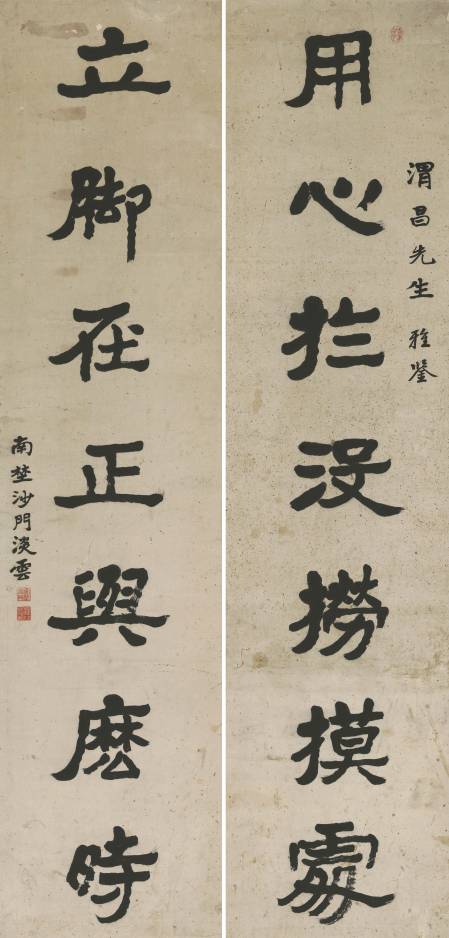 渭昌先生 雅鑒
用心扵没撈摸處
立脚在正與麽時
南埜沙門淡雲